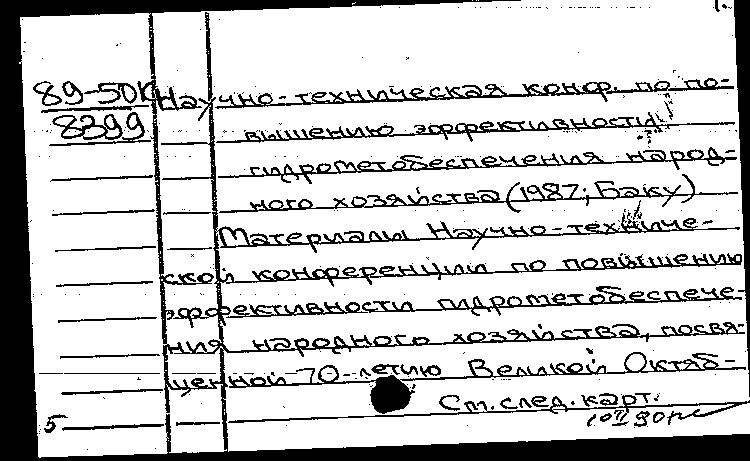 89-50К Научно-техническая конф. по по-
8399 вышению эффективности
гидрометобеспечения народ-
ного хозяйства (1987; Баку).
Материалы Научно-техниче-
ской конференции по повышению
эффективности гидрометобеспече-
ния народного хозяйства, посвя-
щенной 70-летию Великой Октяб-
См. след. карт.
5